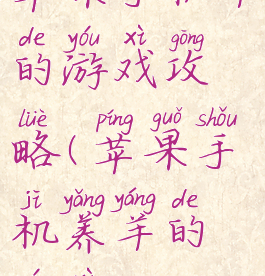 de yóu xì gōng
的游戏攻
lüè píng guǒ shǒu
略(苹果手
jī yǎng yáng de
机养羊的